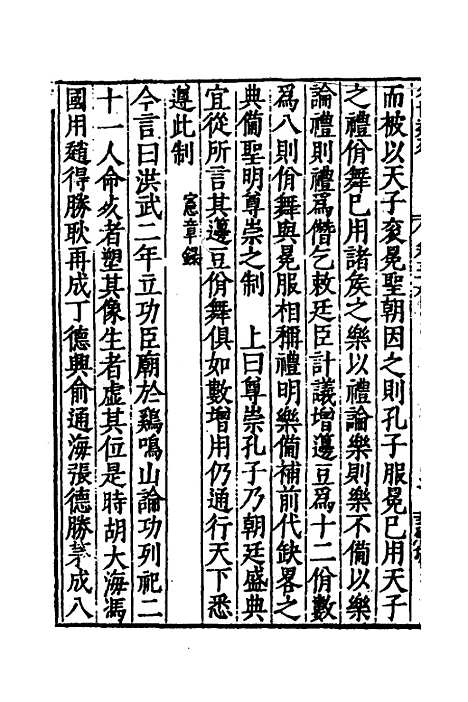 而被以天子衮冕聖朝因之則孔子服冕已用天子
之禮佾舞已用諸矦之樂以禮論樂則樂不備以樂
論禮則禮爲僭乞敕廷臣計議增籩豆爲十二佾數
爲八則佾舞與冕服相稱禮明樂備補前代缺畧之
典備聖明尊崇之制　上曰尊崇孔子乃朝廷盛典
宜從所言其籩豆佾舞俱如數增用仍通行天下悉
遵此制　憲章錄
今言曰洪武二年立功臣廟於鷄鳴山論功列祀二
十一人命歿者塑其像生者虛其位是時胡大海馮
國用趙得勝耿再成丁德興俞通海張德勝茅成八